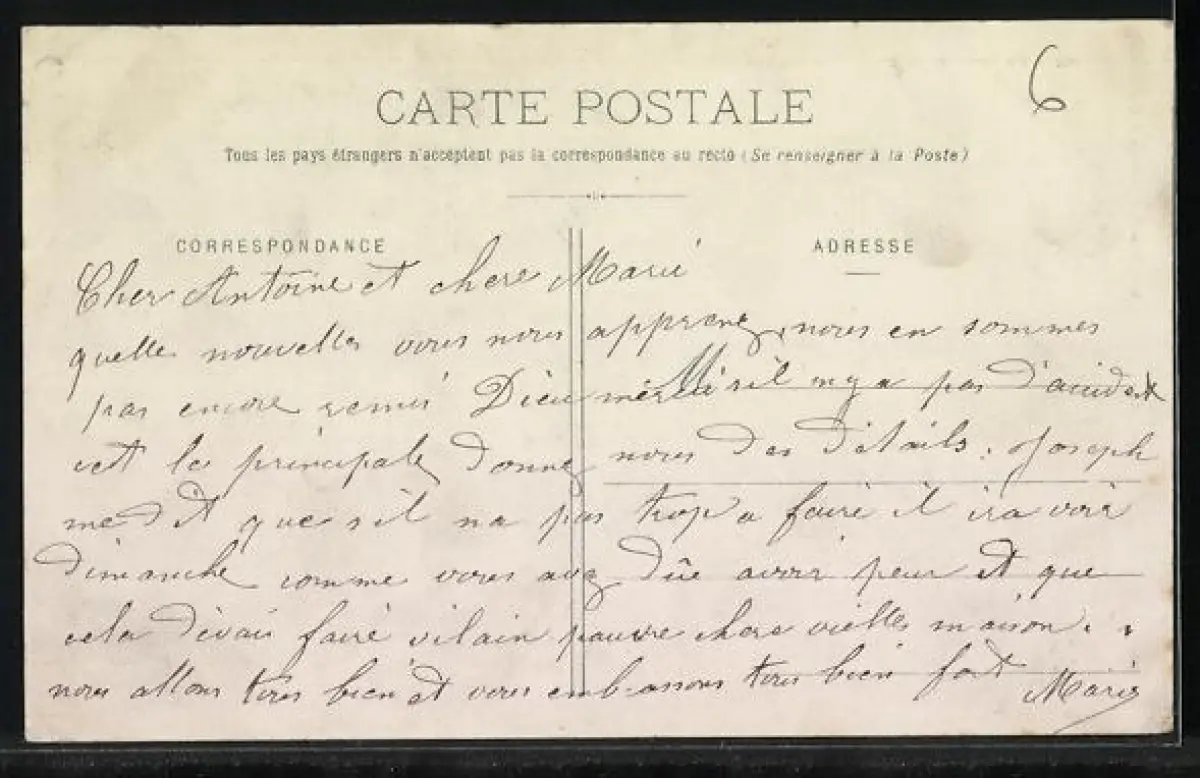 6
CARTE POSTALE
Tous les pays étrangers n'acceptent pas la correspondance au recto (Se renseigner à la Poste)
CORRESPONDANCE
ADRESSE
Cher Antoine et chere Marie
quelles nouvelles vous nous apprenez, nous en sommes
pas encore remis Dieu merci s'il n'y a pas d'accident
cet le principale donnez nous des détails. Joseph
me dit que s'il na pas trop a faire il ira voir
dimanche comme vous avez dûe avoir peur et que
cela devais faire vilain pauvre chere vielles maison.
nous allons tous bien et vous embrassons tous bien fort
Marie